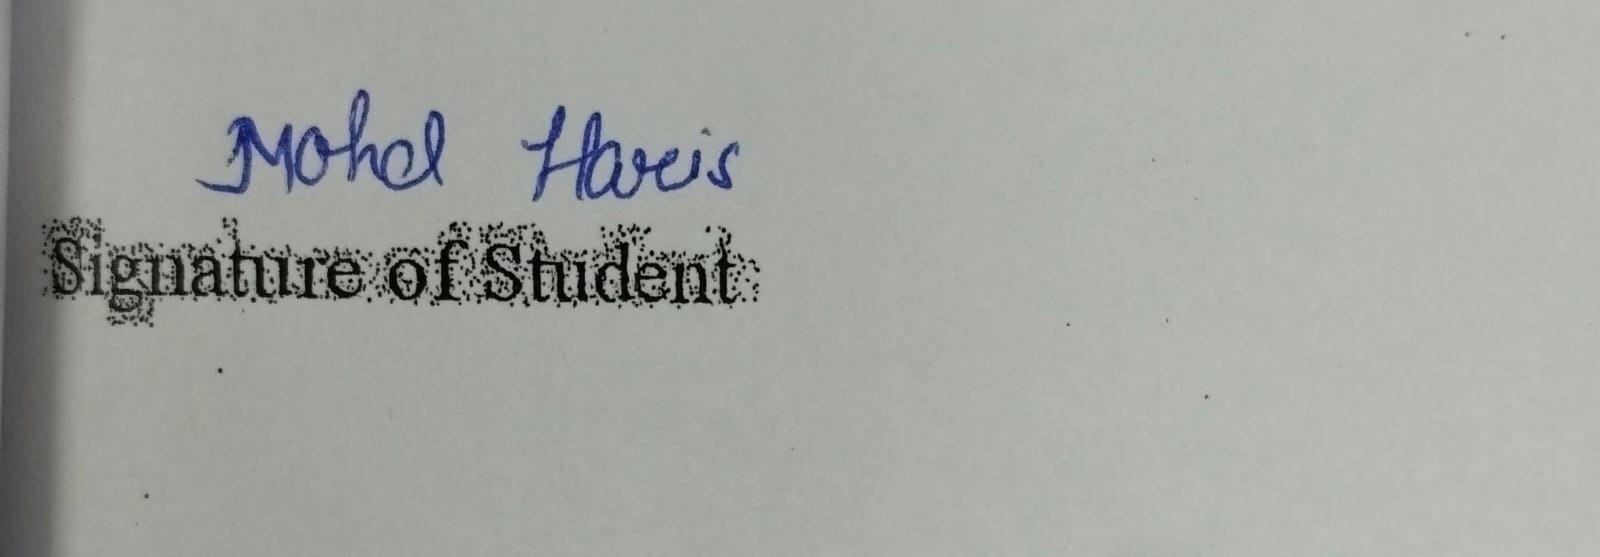 Mohd Haris
Signature of Student